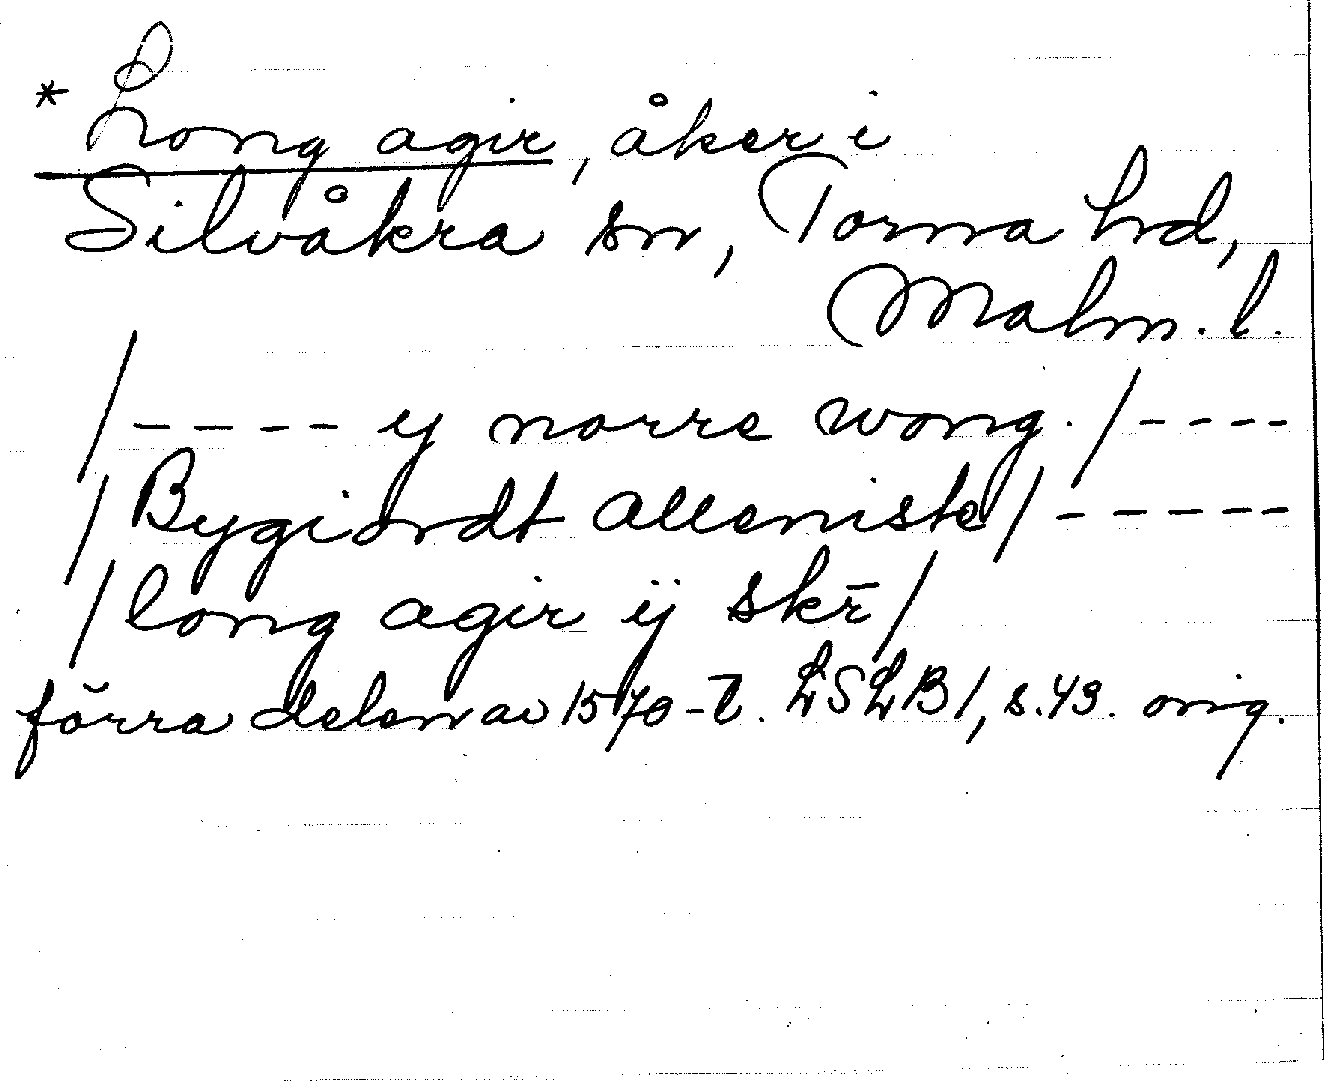 * Long agir, åker i
Silvåkra sn, Torna hd,
Malm. l.
/ - - - - - ij norre wong. / - - - -
/ Bygiordt alleniste / - - - - -
/ long agir ij skr̄ /
förra delen av 1570-t. LSLB 1, s. 43. orig.